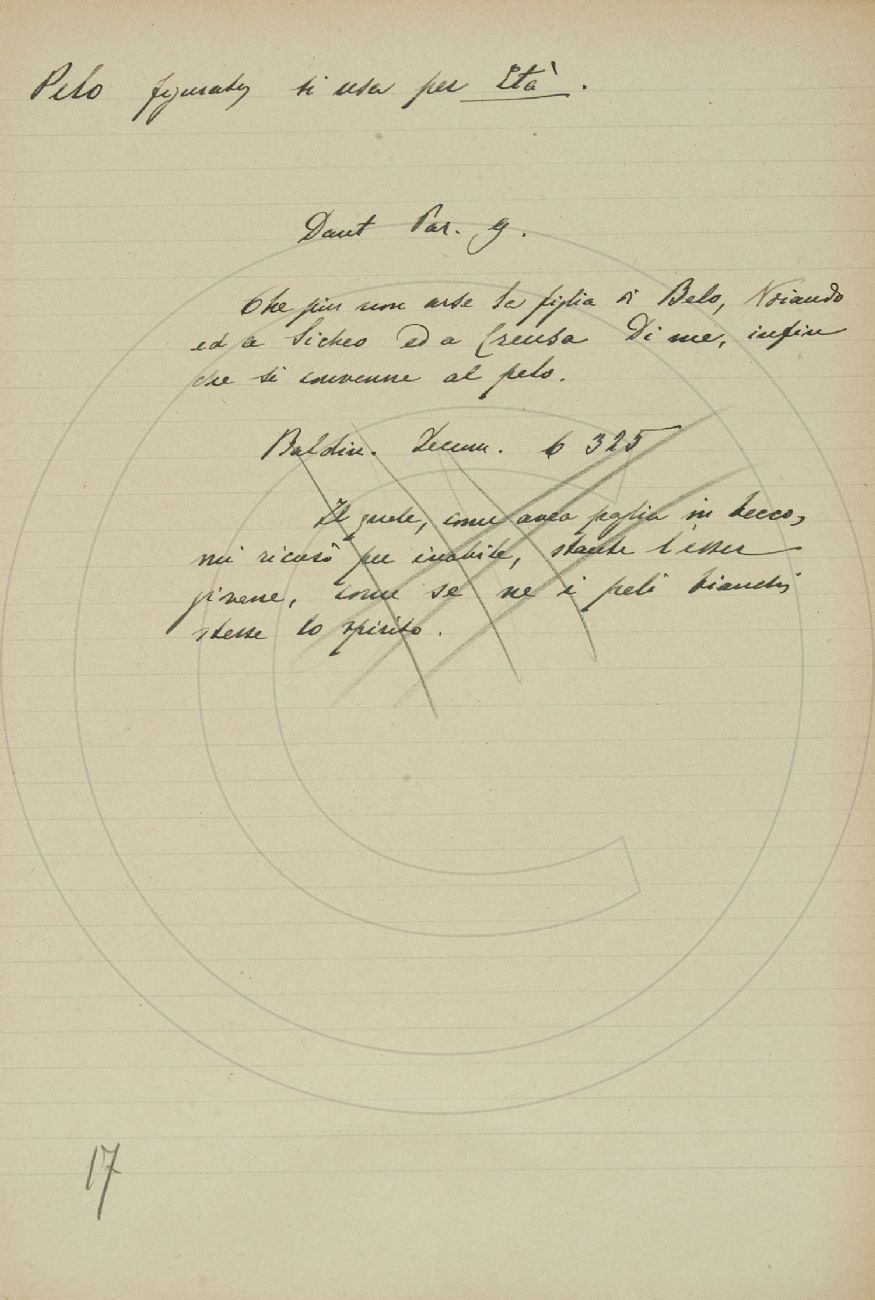 Pelo figurate si usa per Età.
Dant Par. 9.
Che più non arse la figlia di Belo, Noiando
ed a Sicheo ed a Creusa Di me, infin
che si convenne al pelo.
Baldin. Decenn. 6 325
Il quale, come avea paglia in becco,
mi ricusò per inabile, stante l'esser
giovane, come se ne i peli bianchi
stesse lo spirito.
17